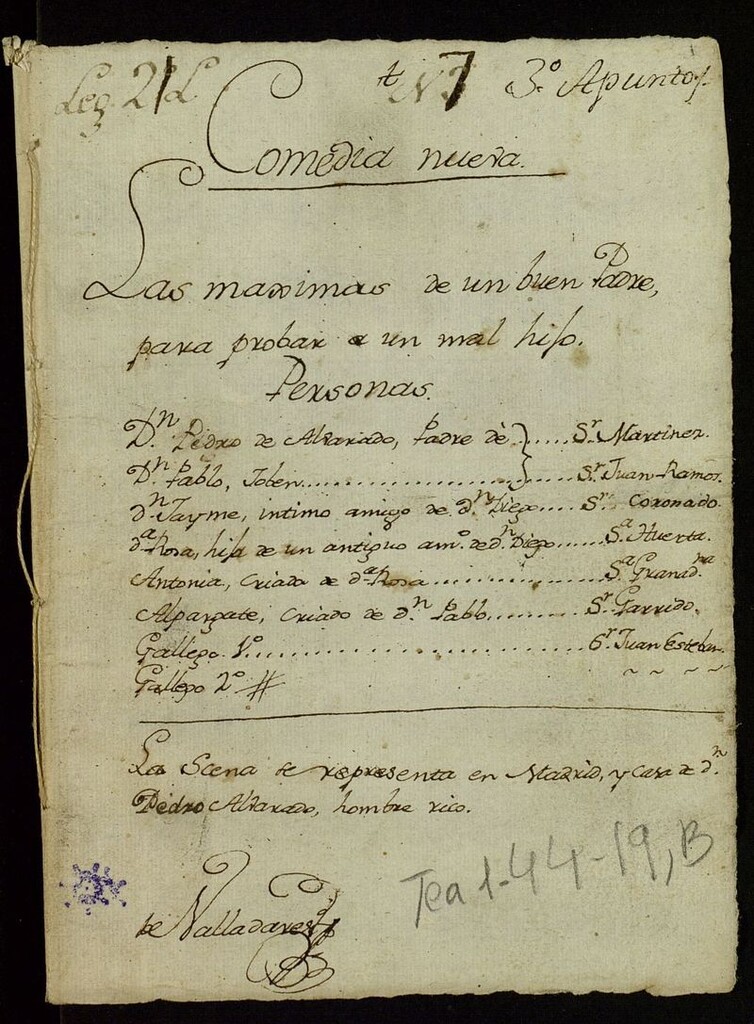 Leg 21 L t N 7 3.º Apunto
Comedia nueva.
Las maximas de un buen Padre,
para probar a un mal hijo.
Personas.
D.ⁿ Pedro de Alvarado, Padre de }..... S.ʳ Martinez.
D.ⁿ Pablo, Joben........................ S.ʳ Juan Ramos.
d.ⁿ Jayme, intimo amigo de d.ⁿ Diego..... S.ʳ Coronado.
d.ª Rosa, hija de un antiguo am.º de d.ⁿ Diego..... S.ª Huerta.
Antonia, criada de d.ª Rosa............... S.ª Granad.ⁿᵃ
Alpargate, criado de d.ⁿ Pablo......... S.ʳ Garrido.
Gallego 1.º ............................. S.ʳ Juan Esteban.
Gallego 2.º #
La Scena se representa en Madrid, y casa de d.ⁿ
Pedro Alvarado, hombre rico.
Tea 1-44-19, B
de Valladares